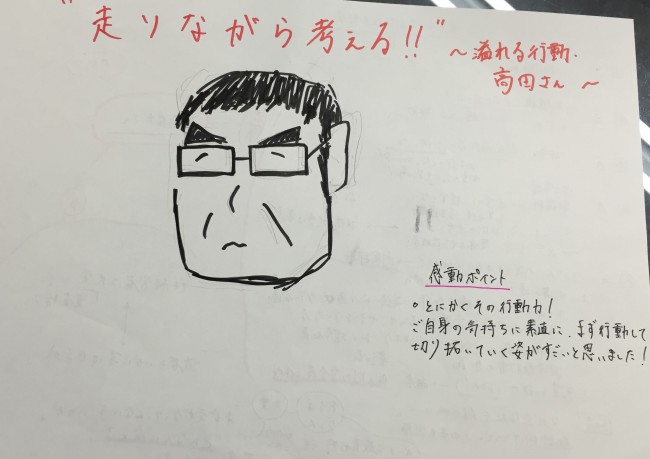 "走りながら考える!!"
〜溢れる行動.
高田さん 〜
感動ポイント
○ とにかくその行動力!
ご自身の気持ちに素直に、まず行動して
切り拓いていく姿がすごいと思いました!